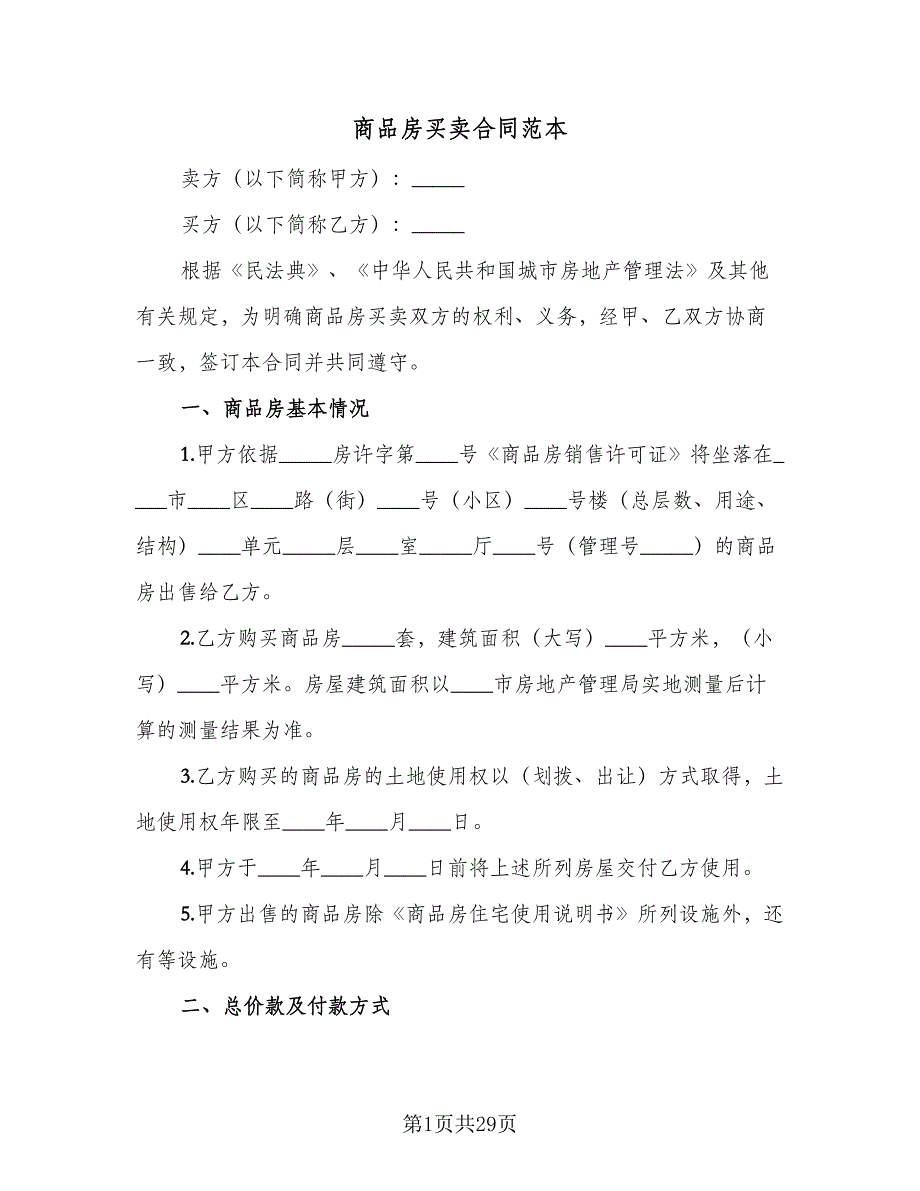 商品房买卖合同范本
卖方（以下简称甲方）：_____
买方（以下简称乙方）：_____
根据《民法典》、《中华人民共和国城市房地产管理法》及其他
有关规定，为明确商品房买卖双方的权利、义务，经甲、乙双方协商
一致，签订本合同并共同遵守。
一、商品房基本情况
1.甲方依据_____房许字第____号《商品房销售许可证》将坐落在_
___市____区____路（街）____号（小区）____号楼（总层数、用途、
结构）____单元_____层____室_____厅____号（管理号_____）的商品
房出售给乙方。
2.乙方购买商品房_____套，建筑面积（大写）____平方米，（小
写）____平方米。房屋建筑面积以____市房地产管理局实地测量后计
算的测量结果为准。
3.乙方购买的商品房的土地使用权以（划拨、出让）方式取得，土
地使用权年限至____年____月____日。
4.甲方于____年____月____日前将上述所列房屋交付乙方使用。
5.甲方出售的商品房除《商品房住宅使用说明书》所列设施外，还
有等设施。
二、总价款及付款方式
第1页共29页